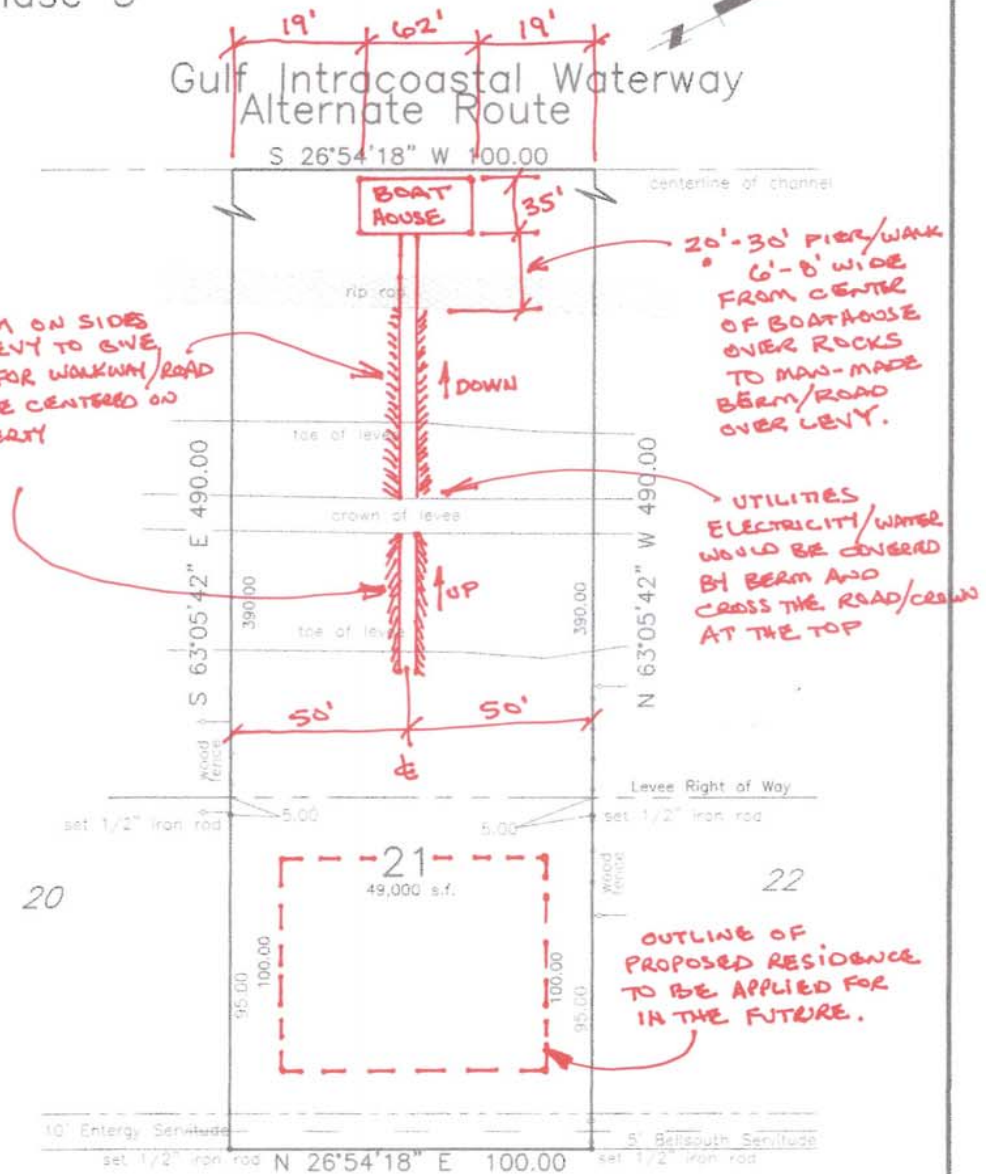 19' 62' 19'
Gulf Intracoastal Waterway
Alternate Route
S 26°54'18" W 100.00
centerline of channel
BOAT
HOUSE
35'
20'-30' PIER/WALK
6'-8' WIDE
FROM CENTER
OF BOATHOUSE
OVER ROCKS
TO MAN-MADE
BERM/ROAD
OVER LEVY.
rip rap
ON SIDES
TO GIVE
FOR WALKWAY/ROAD
CENTERED ON
DOWN
toe of levee
S 63°05'42" E 490.00
N 63°05'42" W 490.00
crown of levee
UTILITIES
ELECTRICITY/WATER
WOULD BE COVERED
BY BERM AND
CROSS THE ROAD/CROWN
AT THE TOP
390.00
UP
390.00
toe of levee
50' 50'
wood
fence
Levee Right of Way
set 1/2" iron rod
5.00
5.00
set 1/2" iron rod
21
49,000 s.f.
20
22
wood
fence
95.00
100.00
100.00
95.00
OUTLINE OF
PROPOSED RESIDENCE
TO BE APPLIED FOR
IN THE FUTRURE.
10' Entergy Servitude
5' Bellsouth Servitude
set 1/2" iron rod
N 26°54'18" E 100.00
set 1/2" iron rod